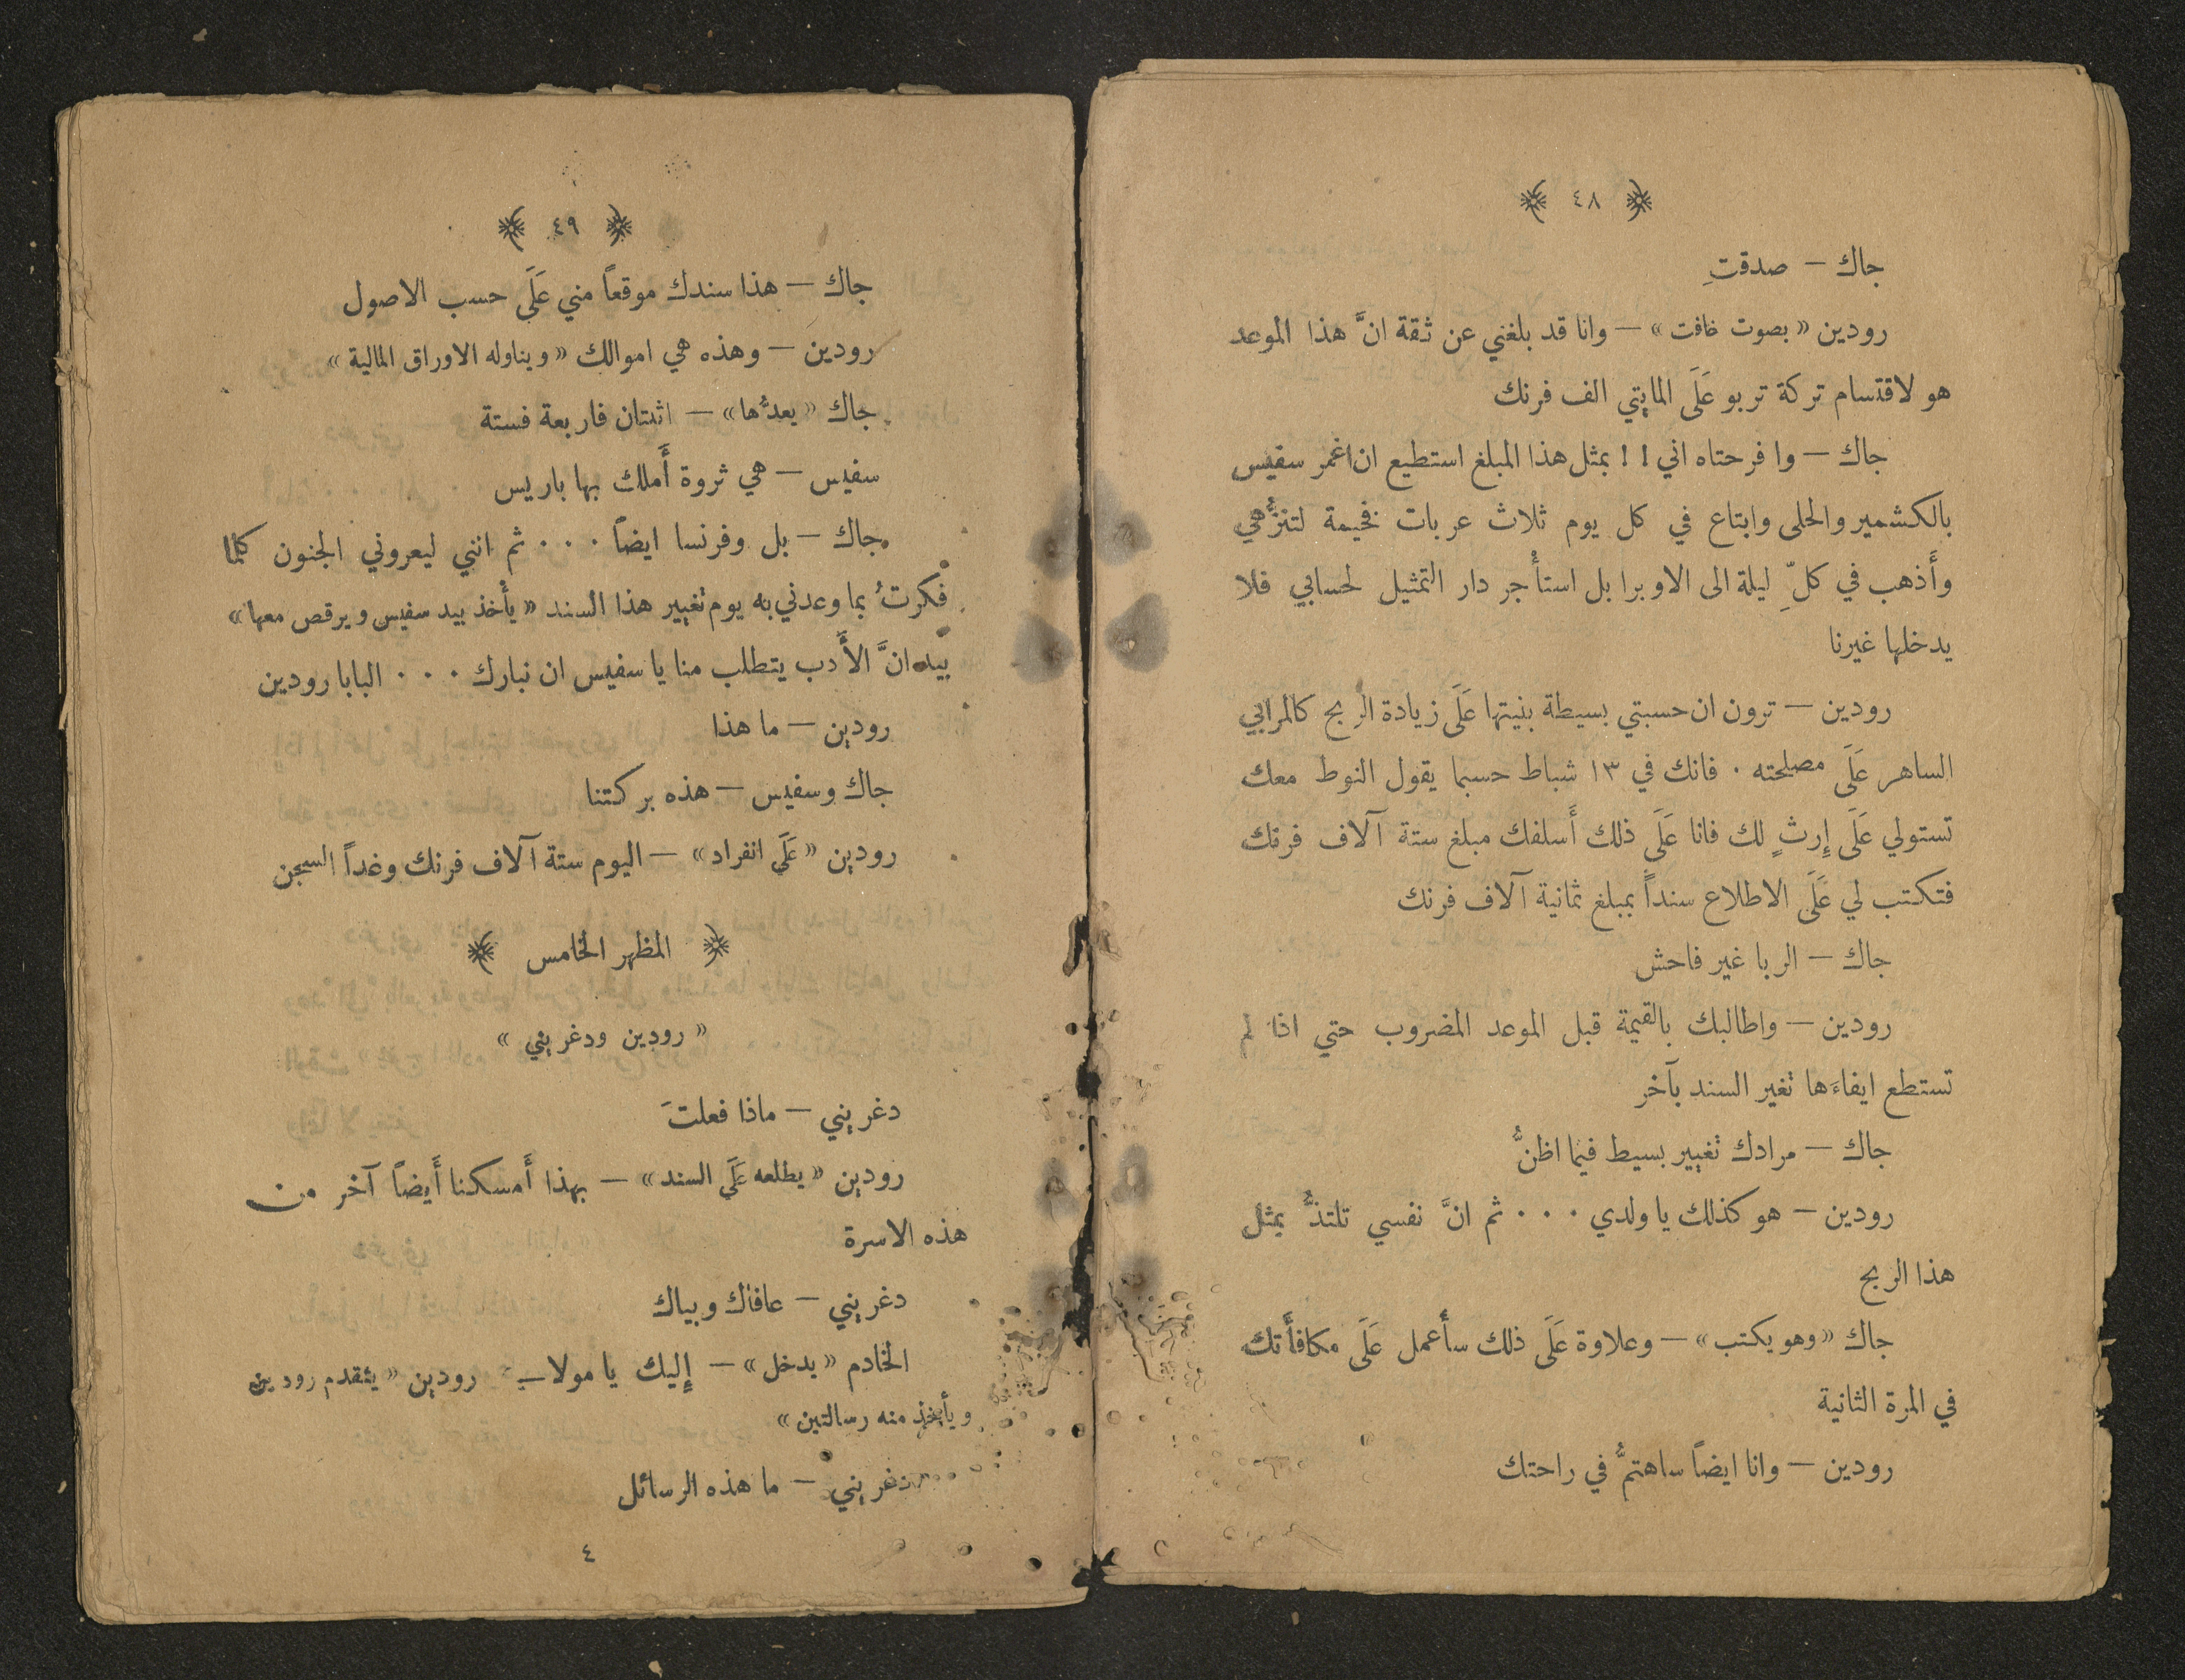 ٤٨
جاك — صدقتِ
رودين «بصوت خافت» — وانا قد بلغني عن ثقة انَّ هذا الموعد
هو لاقتسام تركة تربو عَلَى المايتي الف فرنك
جاك — وا فرحتاه اني ! ! بمثل هذا المبلغ استطيع ان اغمر سفيس
بالكشمير والحلى وابتاع في كل يوم ثلاث عربات فخيمة لتنزُّهي
وأَذهب في كلِّ ليلة الى الاوبرا بل استأْجر دار التمثيل لحسابي فلا
يدخلها غيرنا
رودين — ترون ان حسبتي بسيطة بنيتها عَلَى زيادة الربح كالمرابي
الساهر عَلَى مصلحته . فانك في ١٣ شباط حسبما يقول النوط معك
تستولي عَلَى إِرثٍ لك فانا عَلَى ذلك أَسلفك مبلغ ستة آلاف فرنك
فتكتب لي عَلَى الاطلاع سنداً بمبلغ ثمانية آلاف فرنك
جاك — الربا غير فاحش
رودين — واطالبك بالقيمة قبل الموعد المضروب حتي اذا لم
تستطع ايفاءَها تغير السند بآخر
جاك — مرادك تغيير بسيط فيما اظنُّ
رودين — هو كذلك يا ولدي . . . ثم انَّ نفسي تلتذُّ بمثل
هذا الربح
جاك «وهو يكتب» — وعلاوة عَلَى ذلك سأَعمل عَلَى مكافأَتك
في المرة الثانية
رودين — وانا ايضاً ساهتمُّ في راحتك
٤٩
جاك — هذا سندك موقعاً مني عَلَى حسب الاصول
رودين — وهذه هي اموالك «ويناوله الاوراق المالية»
جاك «يعدُّها» — اثنتان فاربعة فستة
سفيس — هي ثروة أَملك بها باريس
جاك — بل وفرنسا ايضاً . . . ثم انني ليعروني الجنون كلما
فكرتُ بما وعدني به يوم تغيير هذا السند «يأْخذ بيد سفيس ويرقص معها»
بيد انَّ الأَدب يتطلب منا يا سفيس ان نبارك . . . البابا رودين
رودين — ما هذا
جاك وسفيس — هذه بركتنا
رودين «عَلَى انفراد» — اليوم ستة آلاف فرنك وغداً السجن
المظهر الخامس
«رودين ودغريني»
دغريني — ماذا فعلتَ
رودين «يطلعه عَلَى السند» — بهذا أَمسكنا أَيضاً آخر من
هذه الاسرة
دغريني — عافاك وبياك
الخادم «يدخل» — إِليك يا مولاي رودين «يتقدم رودين
ويأخذ منه رسالتين»
دغريني — ما هذه الرسائل
٤